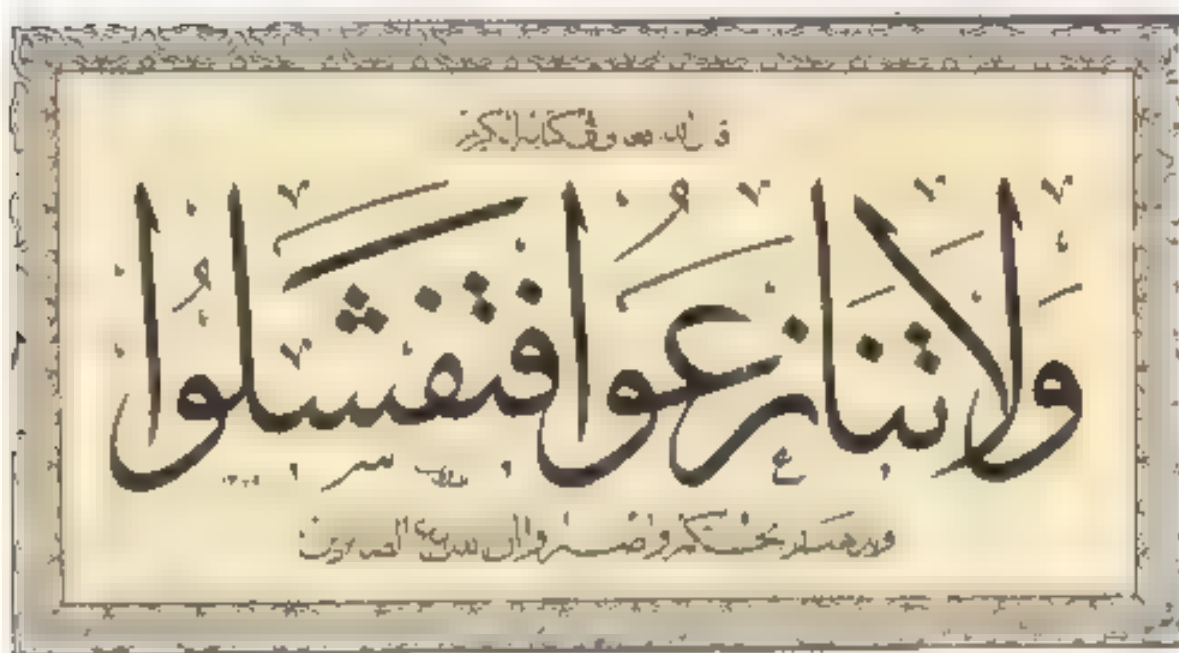 قال الله في كتابه الكريم
ولا تنازعوا فتفشلوا
وتذهب ريحكم واصبروا ان الله مع الصابرين